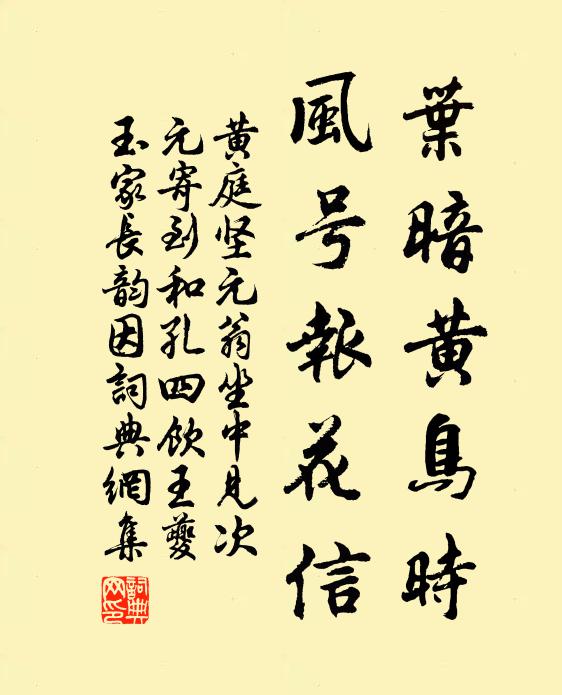 葉暗黄鳥時
風号報花信
黄庭坚元翁坐中見次
元寄到和孔四飲王夔
玉家長韵因詞典網集
詞典网印